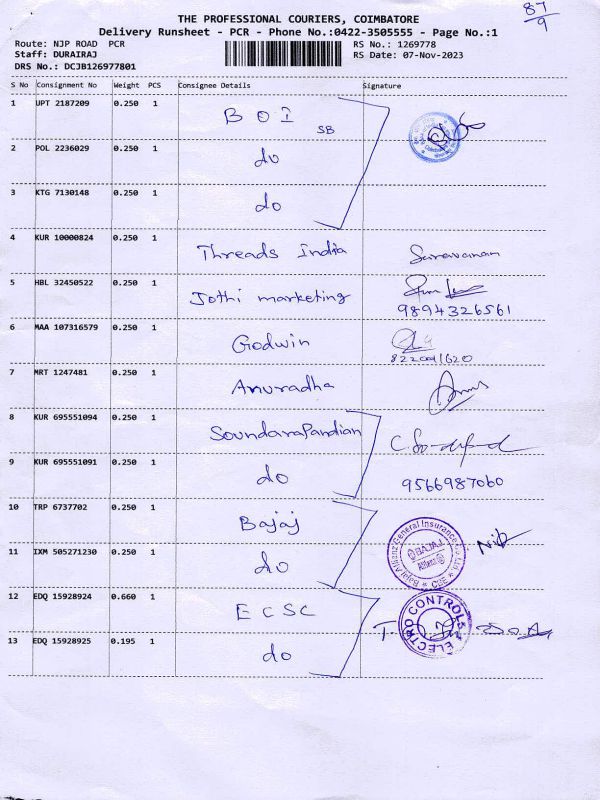 87
9
THE PROFESSIONAL COURIERS, COIMBATORE
Delivery Runsheet - PCR - Phone No.:0422-3505555 - Page No.:1
Route: NJP ROAD PCR
RS No.: 1269778
Staff: DURAIRAJ
RS Date: 07-Nov-2023
DRS No.: DCJB126977801
S No Consignment No Weight PCS Consignee Details Signature
1 UPT 2187209 0.250 1 BOI SB
2 POL 2236029 0.250 1 do
3 KTG 7130148 0.250 1 do
4 KUR 10000824 0.250 1 Threads India Saravanan
5 HBL 32450522 0.250 1 Jothi marketing
9894326561
6 MAA 107316579 0.250 1 Godwin
8220091620
7 MRT 1247481 0.250 1 Anuradha
8 KUR 695551094 0.250 1 SoundaraPandian
9 KUR 695551091 0.250 1 do 9566987060
10 TRP 6737702 0.250 1 Bajaj
Bajaj Allianz General Insurance Co. Ltd. * CBE *
BAJAJ
Allianz
11 IXM 505271230 0.250 1 do
12 EDQ 15928924 0.660 1 ECSC
ELECTRO CONTROLS
13 EDQ 15928925 0.195 1 do